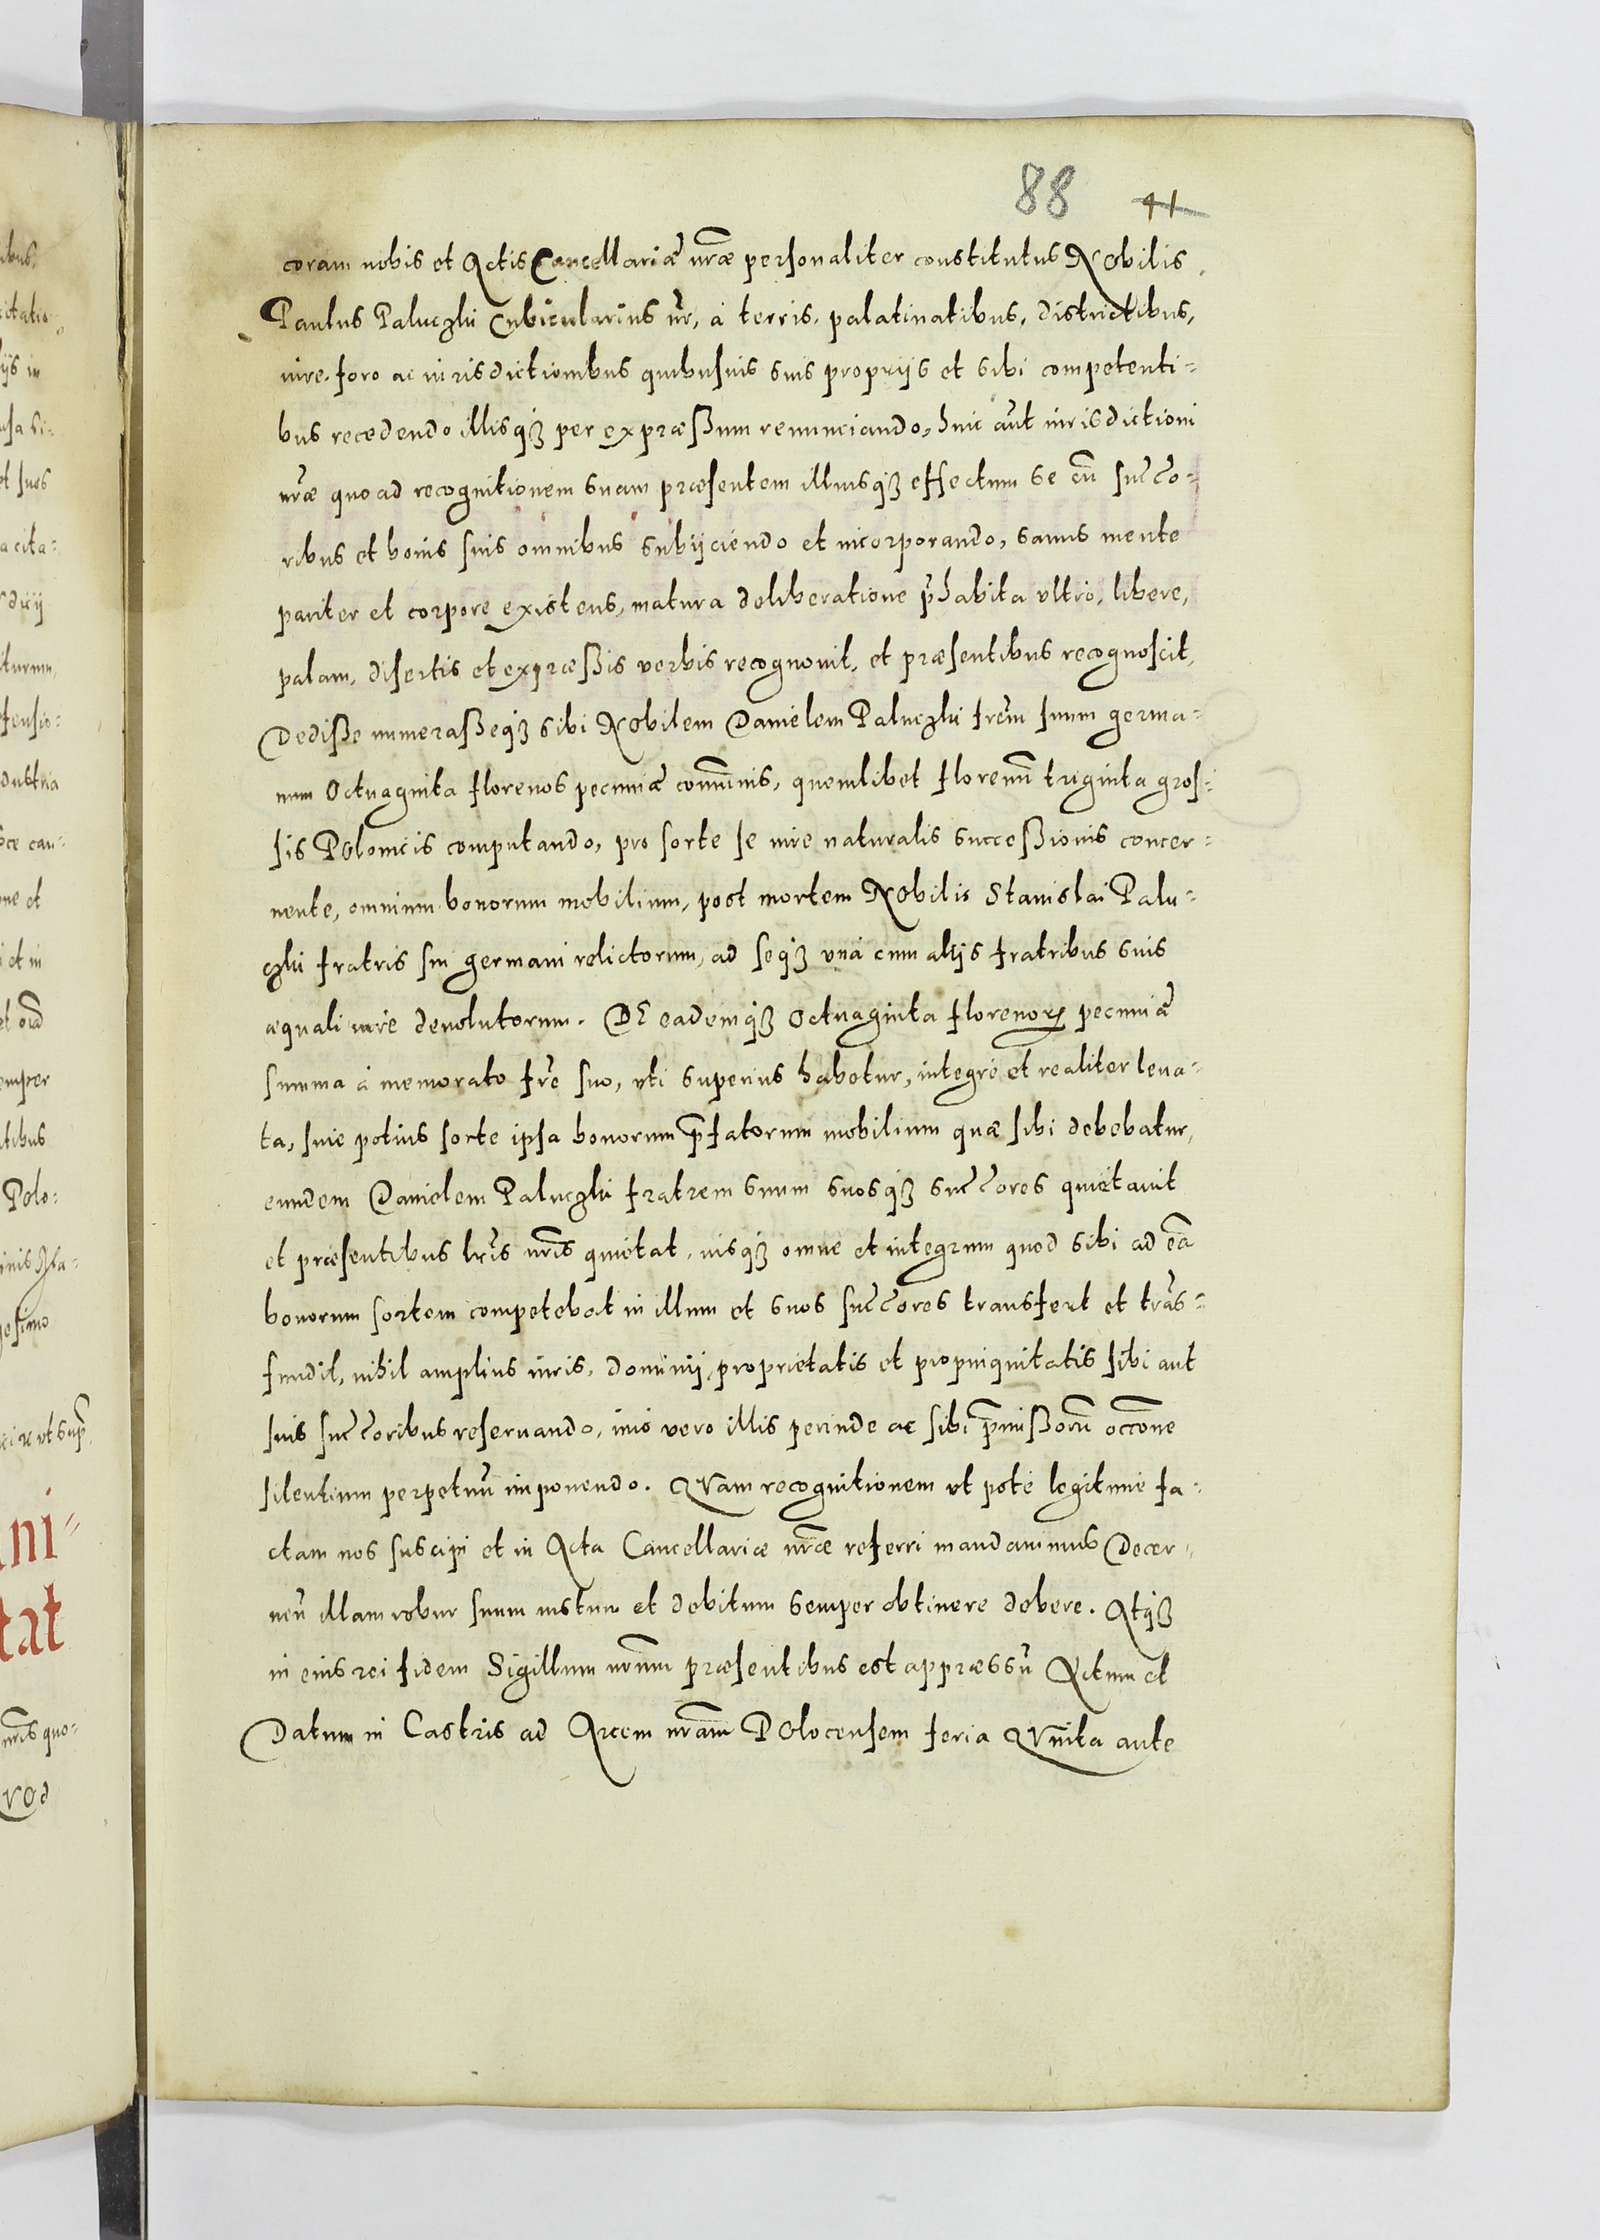 88 41
coram nobis et Actis Cancellariæ nr̃æ personaliter constitutus Nobilis
Paulus Paluczki Cubicularius nr̃, à terris, palatinatibus, districtibus,
iure, foro ac iurisdictionibus quibusuis suis proprijs et sibi competenti=
bus recedendo illisq3 per expræßum renunciando, huic aut̃ iurisdictioni
nr̃æ quo ad recognitionem suam præsentem illiusq3 effectum se cũ suc̃c̃o=
ribus et bonis suis omnibus subijciendo et incorporando, sanus mente
pariter et corpore existens, matura deliberatione p̃habita vltro, libere,
palam, disertis et expræßis verbis recognouit, et præsentibus recognoscit,
Dediße numeraßeq3 sibi Nobilem Danielem Paluczki frẽm suum germa=
num Octuaginta florenos pecuniæ com̃unis, quemlibet florenũ triginta gros=
sis Polonicis computando, pro sorte se iure naturalis succeßionis concer=
nente, omnium bonorum mobilium, post mortem Nobilis Stanislai Palu=
czki fratris sui germani relictorum, ad seq3 vnà cum alijs fratribus suis
æquali iure deuolutorum. DE eademq3 Octuaginta florenorꝝ pecuniæ
summa à memorato frẽ suo, vti superius habetur, integrè et realiter leua=
ta, siue potius sorte ipsa bonorum p̃fatorum mobilium quæ sibi debebatur,
eundem Danielem Paluczki fratrem suum suosq3 suc̃c̃ores quietauit
et præsentibus lr̃is nr̃is quietat, iusq3 omne et integrum quod sibi ad eã
bonorum sortem competebat in illum et suos suc̃c̃ores transfert et trãs=
fundit, nihil amplius iuris, dominij, proprietatis et propinquitatis sibi aut
suis suc̃c̃oribus reseruando, imò vero illis perinde ac sibi p̃mißorũ occõne
silentium perpetuũ imponendo. QVam recognitionem vt potè legitimè fa=
ctam nos suscipi et in Acta Cancellariæ nr̃æ referri mandauimus Decer=
neñ illam robur suum iustum et debitum semper obtinere debere. Atq3
in eius rei fidem Sigillum nr̃um præsentibus est appræssũ Actum et
Datum in Castris ad Arcem nr̃am Polocensem feria QVinta ante